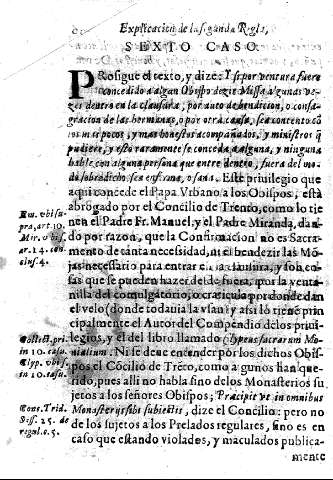 Explicacion de la segunda Regla,
SEXTO CASO.
PRosigue el texto, y dize: Y si por ventura fuere
concedido a algun Obispo dezir Missa algunas ve-
zes dentro en la clausura, por auto de bendicion, o consa-
gracion de las hermanas, o por otra causa, sea contento cõ
los mas pocos, y mas honestos acompañados, y ministros q̃
pudiere, y esto raramente se conceda a alguna, y ninguna
hable con alguna persona que entre dentro, fuera del mo-
do sobredicho sea enferma, o sana. Este privilegio que
aqui concede el Papa Vrbano a los Obispos, està
abrogado por el Concilio de Trento, como lo tie
nen el Padre Fr. Manuel, y el Padre Miranda, dan-
do por razon, que la Confirmacion no es Sacra-
mento de tanta necessidad, ni el bendezir las Mõ-
jas necessario para entrar en la clausura, y son co-
sas que se pueden hazer desde fuera, por la venta-
nilla del comulgatorio, o craticula por donde dan
el velo (donde todavia la vsan) y assi lo tiene prin
cipalmente el Autor del Compendio de los privi-
legios, y el del libro llamado Clypeus sacrarum Mo-
nialium: Ni se deve entender por los dichos Obis-
pos, el Cõcilio de Trẽto, como algunos han que-
rido, pues alli no habla sino de los Monasterios su
jetos a los señores Obispos; Præcipit ve in omnibus
Monasterijs sibi subiectis, dize el Concilio: pero no
de los sujetos a los Prelados regulares, sino es en
caso que estando violados, y maculados publica-
mente
Em. vbi su-
pra, art. 10.
Mir. vbi s.
ar. 14. con
clus. 4.
Collect. pri.
in 10. casu.
Clyp. vbi s.
in 10. casu.
Conc. Trid.
Sess. 25. de
regul. c. 5.